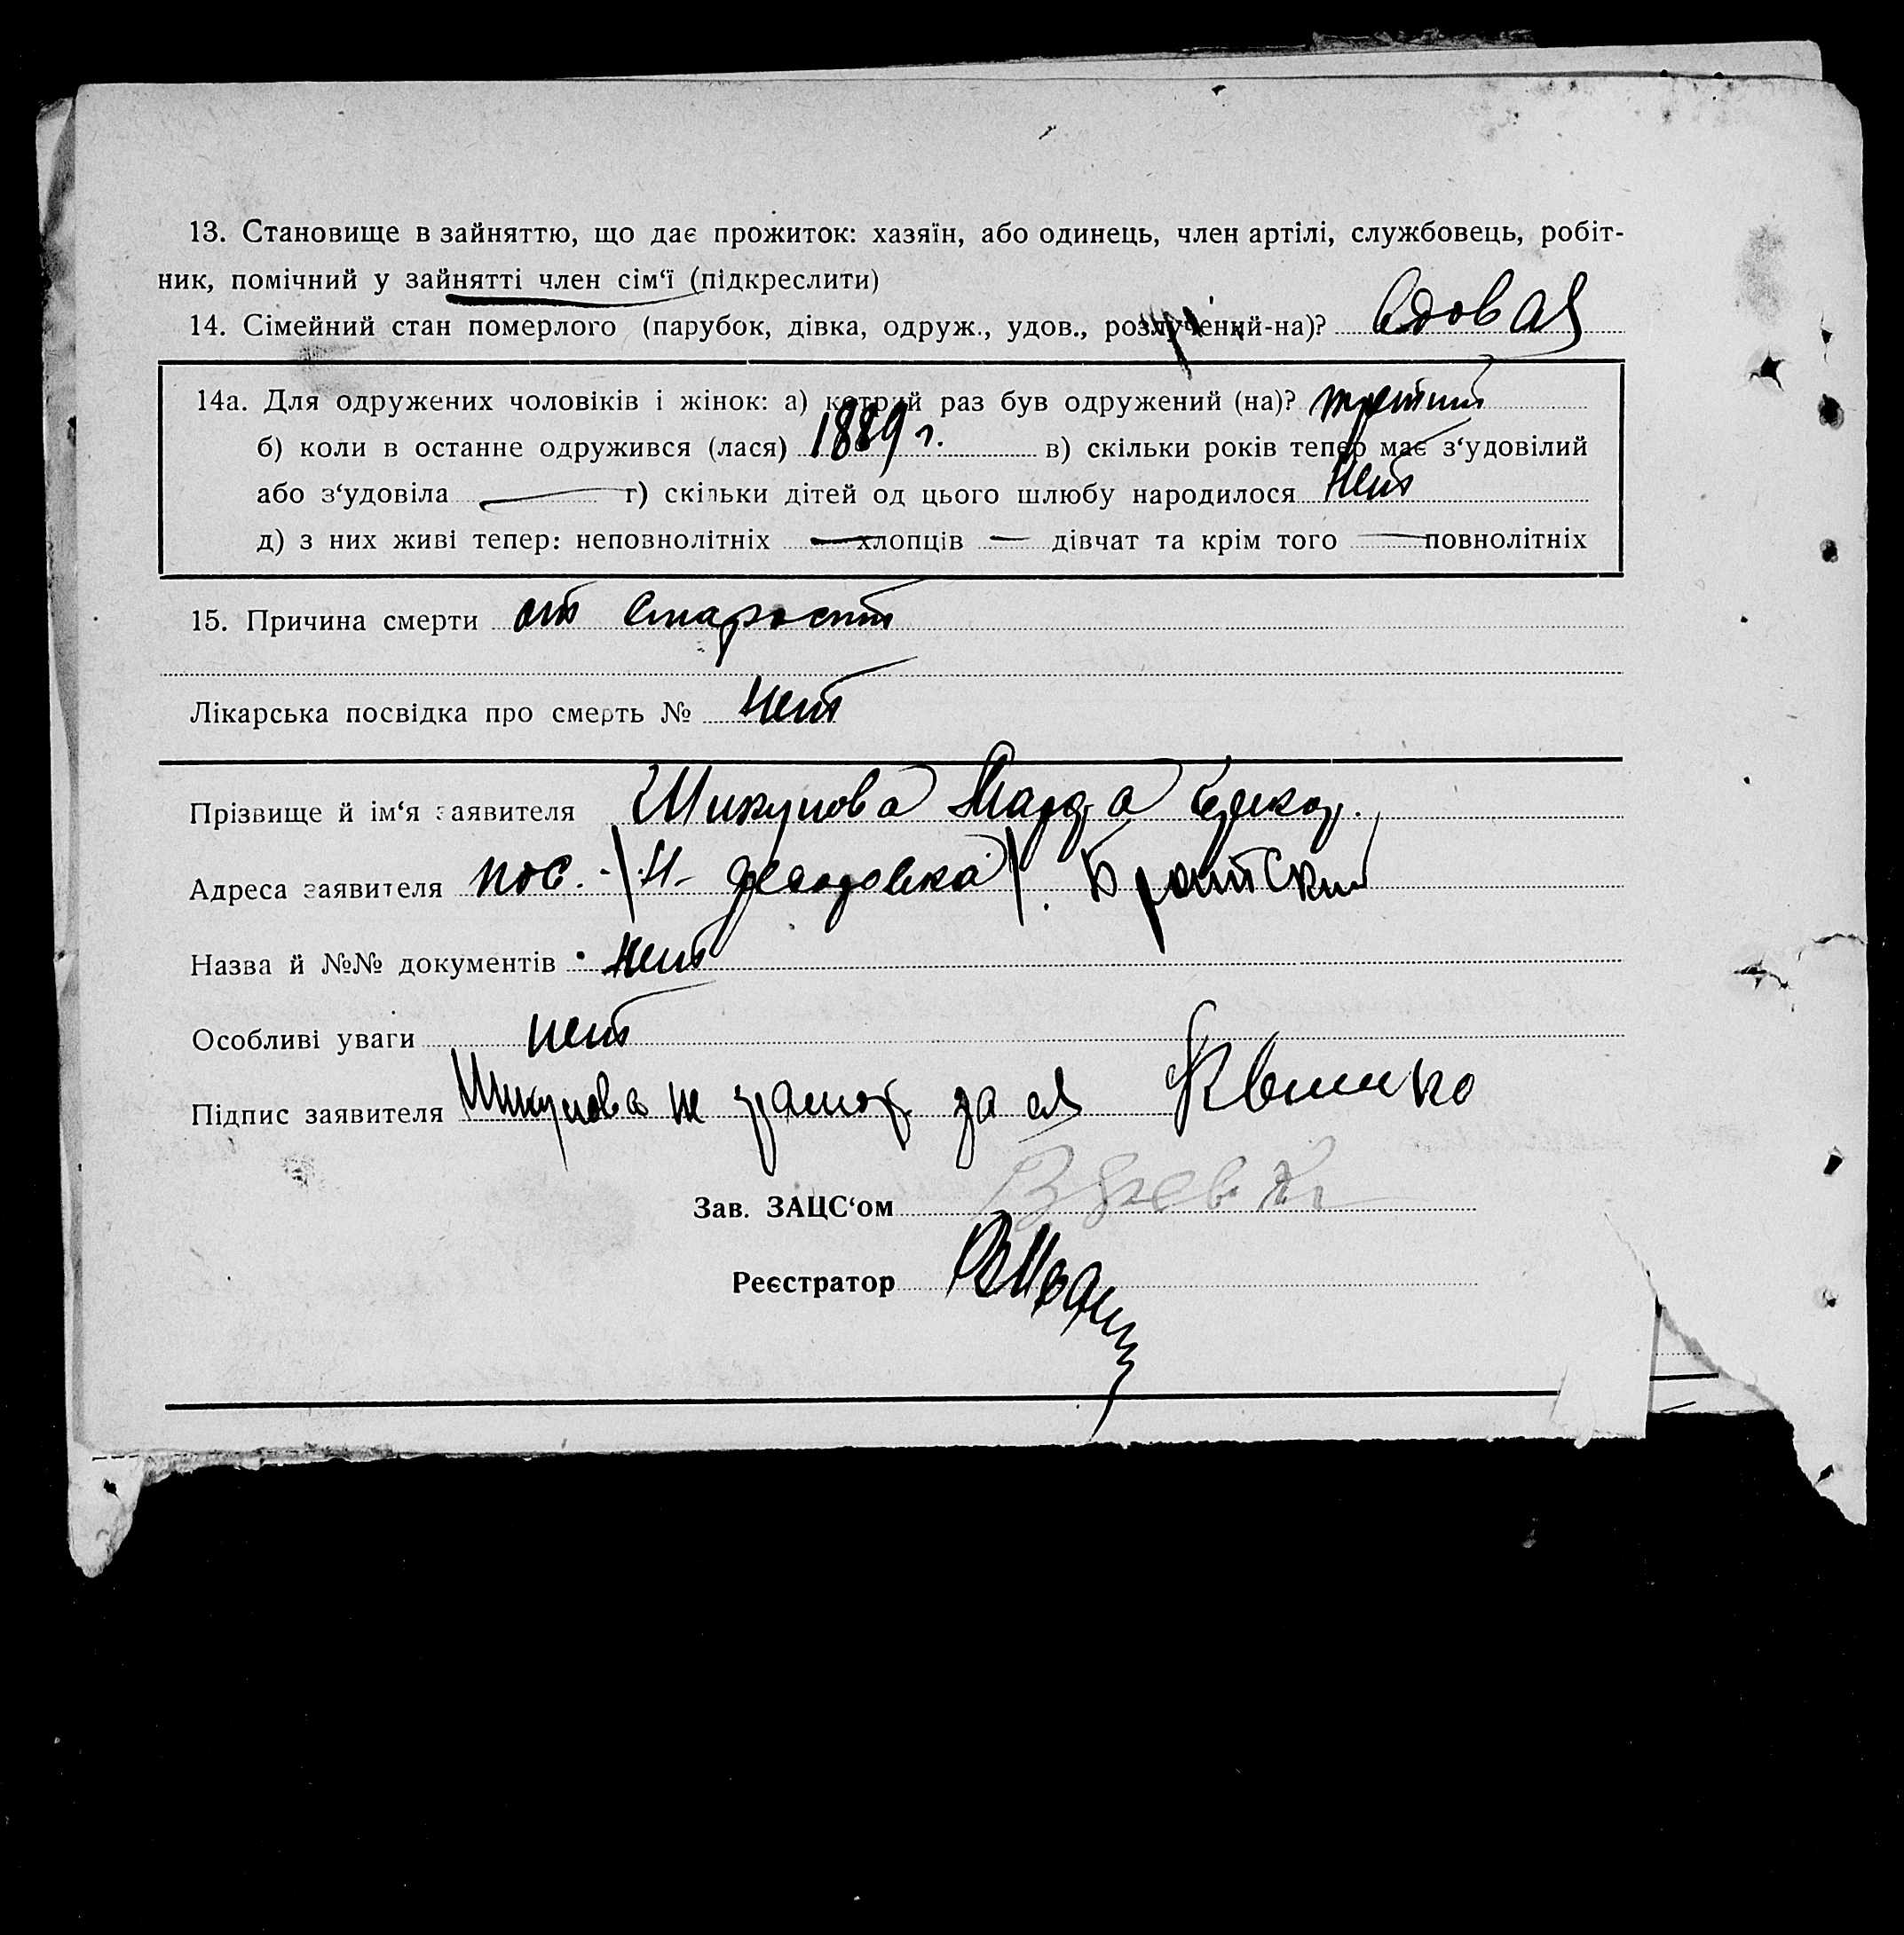 13. Становище в зайняттю, що дає прожиток: хазяїн, або одинець, член артілі, службовець, робіт-
ник, помічний у зайнятті член сім‘ї (підкреслити)
14. Сімейний стан померлого (парубок, дівка, одруж., удов., розлучений-на)? вдовая
14а. Для одружених чоловіків і жінок: а) котрий раз був одружений (на)? третий
б) коли в останне одружився (лася) 1889 г. в) скільки років тепер має з‘удовілий
або з‘удовіла г) скільки дітей од цього шлюбу народилося нет
д) з них живі тепер: неповнолітніх — хлопців — дівчат та крім того — повнолітніх
15. Причина смерти от старости
Лікарська посвідка про смерть № нет
Прізвище й ім‘я заявителя Шикунова
Адреса заявителя пос. Братский
Назва й №№ документів нет
Особливі уваги нет
Підпис заявителя Шикунова за
Зав. ЗАЦС‘ом
Реєстратор